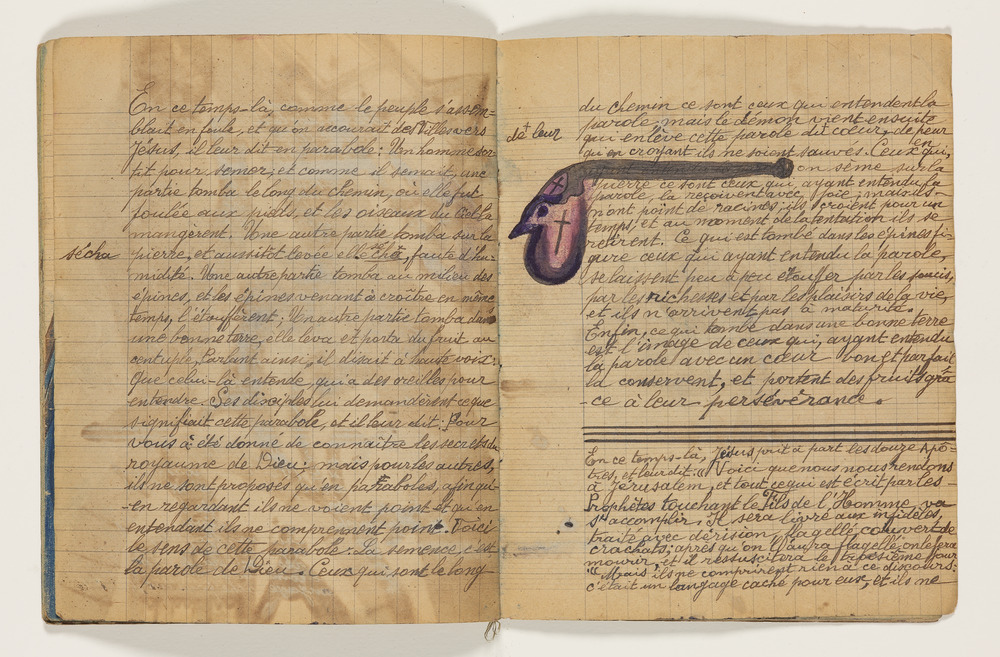 En ce temps-là, comme le peuple s'assem=
blait en foule, et qu'on accourait des Villes vers
Jésus, il leur dit en parabole: Un homme sor=
tit pour semer; et comme il semait, une
partie tomba le long du chemin, où elle fut
foulée aux pieds, et les oiseaux du Ciel la
mangèrent. Une autre partie tomba sur la
sécha
pierre, et aussitôt levée elle sécha, faute d'hu-
midité. Une autre partie tomba au milieu des
épines, et les épines venant à croître en même
temps, l'étouffèrent; Un autre partie tomba dans
une bonne terre, elle leva et porta du fruit au
centuple. Parlant ainsi, il disait à haute voix:
Que celui-là entende, qui a des oreilles pour
entendre. Ses disciples lui demandèrent ce que
signifiait cette parabole, et il leur dit: Pour
vous à été donné de connaître les secrets du
royaume de Dieu; mais pour les autres,
ils ne sont proposés qu'en paraboles, afin qu'
-en regardant ils ne voient point et qu'en
entendant ils ne comprennent point. Voici
le sens de cette parabole: La semence, c'est
la parole de Dieu. Ceux qui sont le long-
du chemin ce sont ceux qui entendent la
parole, mais le démon vient ensuite
de leur
qui enlève cette parole du coeur, de peur
qu'en croyant ils ne soient sauvés. Ceux qui,
l'on sème sur la
pierre ce sont ceux qui, ayant entendu la
parole, la reçoivent avec joie; mais ils
n'ont point de racines; ils croient pour un
temps, et au moment de la tentation ils se
retirent. Ce qui est tombé dans les épines fi-
gure ceux qui ayant entendu la parole,
se laissent peu à peu étouffer par les soucis,
par les richesses et par les plaisirs de la vie,
et ils n'arrivent pas à maturité.
Enfin, ce qui tombé dans une bonne terre
est l'image de ceux qui, ayant entendu
la parole avec un cœur bon et parfait
la conservent, et portent des fruits grâ
-ce à leur persévérance.
En ce temps-là, Jésus prit à part les douze Apô-
tres, et leur dit: "Voici que nous nous rendons
à Jérusalem, et tout ce qui est écrit par les-
Prophètes touchant le Fils de l'Homme va
s'accomplir. Il sera livré aux infidèles
traité avec dérision, flagellé, couvert de
crachats; après qu'on l'aura flagellé, on le fera
mourir, et il ressuscitera le troisième jour
" Mais ils ne comprirent rien à ce discours:
c'était un langage caché pour eux, et ils ne